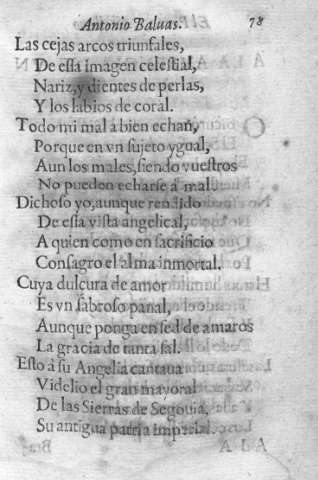 Antonio Baluas. 78
Las cejas arcos triunfales,
De essa imagen celestial,
Nariz, y dientes de perlas,
Y los labios de coral.
Todo mi mal à bien echan,
Porque en vn sujeto ygual,
Aun los males, siendo vuestros
No pueden echarse a mal.
Dichoso yo, aunque rendido
De essa vista angelical,
A quien como en sacrificio
Consagro el alma inmortal.
Cuya dulçura de amor
Es vn sabroso panal,
Aunque ponga en sed de amaros
La gracia de tanta sal.
Esto à su Angelia cantaua
Videlio el gran mayoral
De las Sierras de Segouia,
Su antigua patria Imperial.